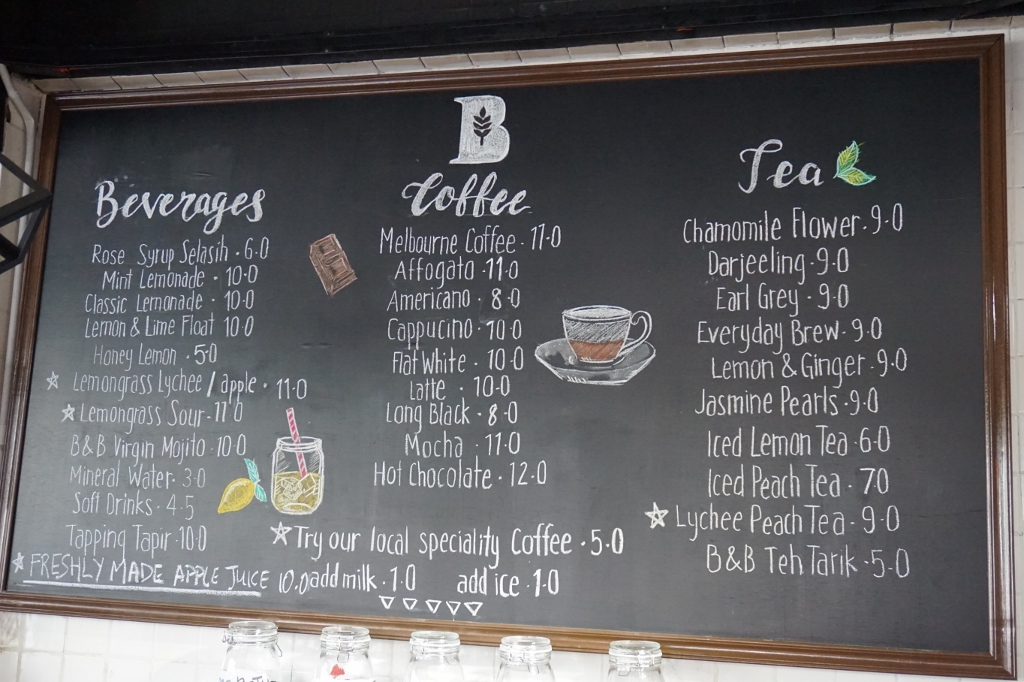 B
Beverages
Rose Syrup Selasih · 6.0
Mint Lemonade · 10.0
Classic Lemonade · 10.0
Lemon & Lime Float 10.0
Honey Lemon · 5.0
☆ Lemongrass Lychee / apple · 11.0
☆ Lemongrass Sour · 11.0
B&B Virgin Mojito · 10.0
Mineral Water · 3.0
Soft Drinks · 4.5
Tapping Tapir · 10.0
☆ FRESHLY MADE APPLE JUICE 10.0
Coffee
Melbourne Coffee · 17.0
Affogato · 11.0
Americano · 8.0
Cappucino · 10.0
Flat White · 10.0
Latte · 10.0
Long Black · 8.0
Mocha · 11.0
Hot Chocolate · 12.0
☆ Try our local speciality Coffee · 5.0
add milk · 1.0 add ice · 1.0
Tea
Chamomile Flower · 9.0
Darjeeling · 9.0
Earl Grey · 9.0
Everyday Brew · 9.0
Lemon & Ginger · 9.0
Jasmine Pearls · 9.0
Iced Lemon Tea · 6.0
Iced Peach Tea · 7.0
☆ Lychee Peach Tea · 9.0
B&B Teh Tarik · 5.0